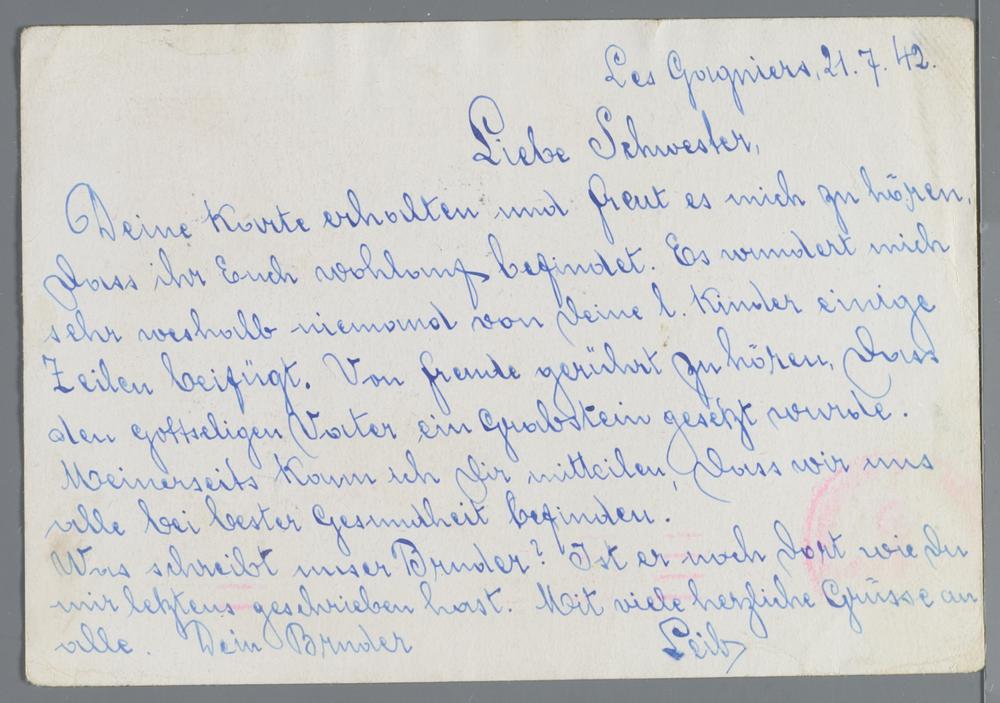 Les Gagniers, 21. 7. 42.
Liebe Schwester,
Deine Karte erhalten und freut es mich zu hören,
dass ihr Euch wohlauf befindet. Es wundert mich
sehr weshalb niemand von deine l. Kinder einige
Zeilen beifügt. Von freude gerührt zu hören, dass
den gottseligen Vater ein Grabstein gesetzt wurde.
Meinerseits kann ich dir mitteilen, dass wir uns
alle bei bester Gesundheit befinden.
Was schreibt unser Bruder? Ist er noch dort wie du
mir letztens geschrieben hast. Mit viele herzliche Grüsse an
alle. Dein Bruder Leib